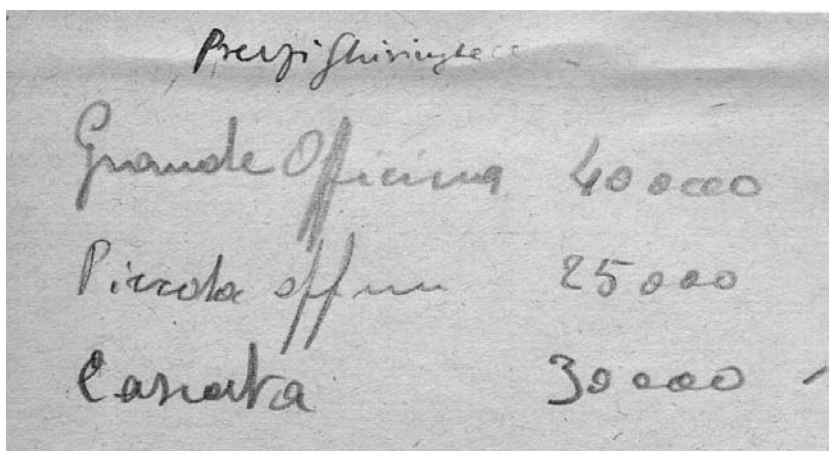 Prezzi Ghiringhe
Grande Officina 40 0000
Piccola offnn 25000
Cascata 30000